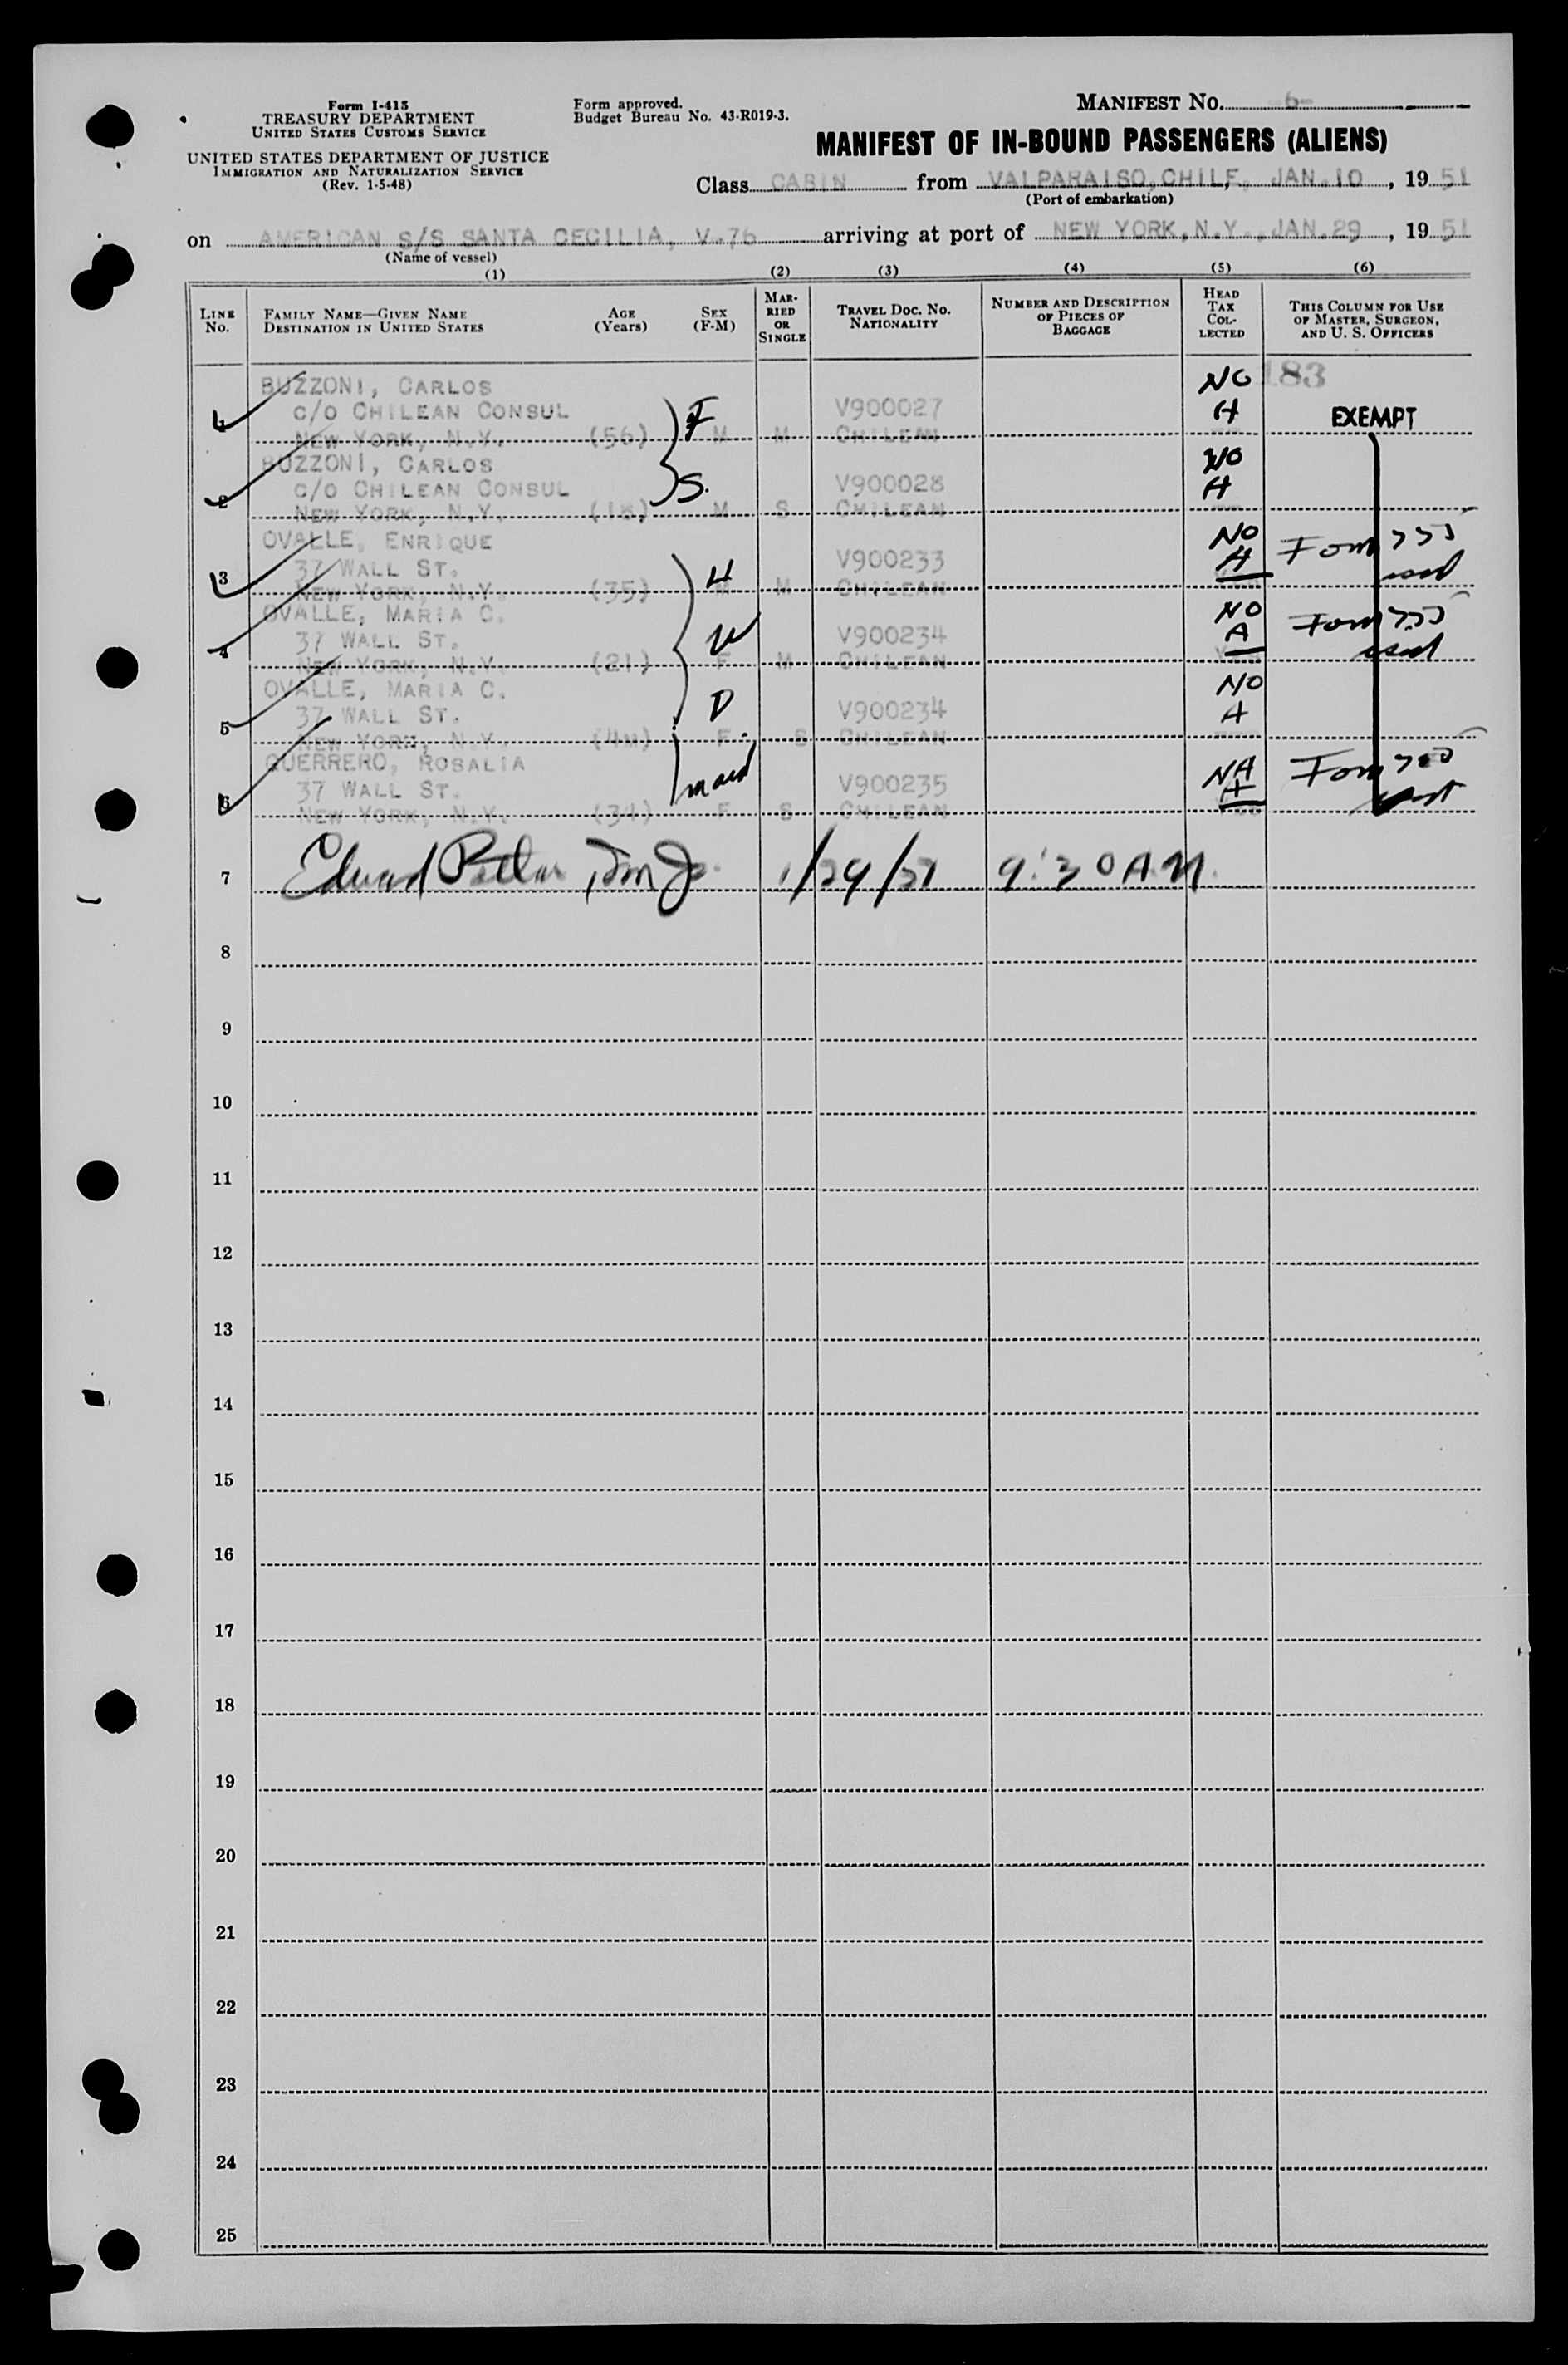 Form I-415
TREASURY DEPARTMENT
UNITED STATES CUSTOMS SERVICE
UNITED STATES DEPARTMENT OF JUSTICE
IMMIGRATION AND NATURALIZATION SERVICE
(Rev. 1-5-48)
Form approved.
Budget Bureau No. 43-R019-3.
MANIFEST No. -6-
MANIFEST OF IN-BOUND PASSENGERS (ALIENS)
Class CABIN from VALPARAISO, CHILE, JAN.10, 1951
(Port of embarkation)
on AMERICAN S/S SANTA CECILIA, V-76 arriving at port of NEW YORK, N.Y., JAN.29, 1951
(Name of vessel)
(1) (2) (3) (4) (5) (6)
LINE No. FAMILY NAME—GIVEN NAME DESTINATION IN UNITED STATES AGE (Years) SEX (F-M) MARRIED OR SINGLE TRAVEL DOC. NO. NATIONALITY NUMBER AND DESCRIPTION OF PIECES OF BAGGAGE HEAD TAX COLLECTED THIS COLUMN FOR USE OF MASTER, SURGEON, AND U. S. OFFICERS
BUZZONI, CARLOS NO 183
1 C/O CHILEAN CONSUL F V900027 EXEMPT
NEW YORK, N.Y. (56) M M CHILEAN
BUZZONI, CARLOS NO
2 C/O CHILEAN CONSUL S. V900028
NEW YORK, N.Y. (18) M S CHILEAN
OVALLE, ENRIQUE NO
3 37 WALL ST. H V900233 Form
NEW YORK, N.Y. (35) M M CHILEAN
OVALLE, MARIA C. NO
4 37 WALL ST. W V900234 Form
NEW YORK, N.Y. (21) F M CHILEAN
OVALLE, MARIA C. NO
5 37 WALL ST. D V900234
NEW YORK, N.Y. (4M) F S CHILEAN
GUERRERO, ROSALIA
6 37 WALL ST. maid V900235 Form
NEW YORK, N.Y. (34) F S CHILEAN
7 Edward 9:30 A.M.
8
9
10
11
12
13
14
15
16
17
18
19
20
21
22
23
24
25